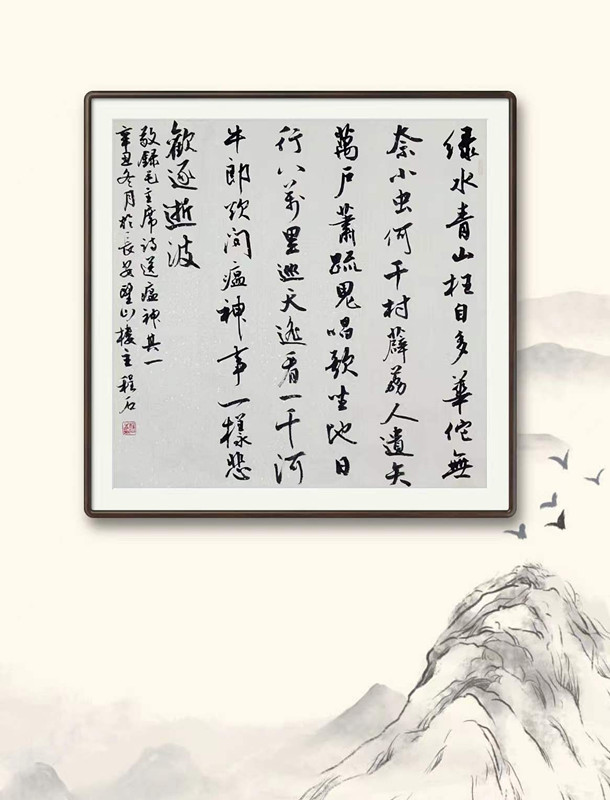 绿水青山枉自多華佗無
奈小虫何千村薜荔人遺矢
萬戶蕭疏鬼唱歌坐地日
行八萬里巡天遥看一千河
牛郎欲問瘟神事一樣悲
歡逐逝波
敬録毛主席诗送瘟神其一
辛丑冬月於長安望山樓主程石